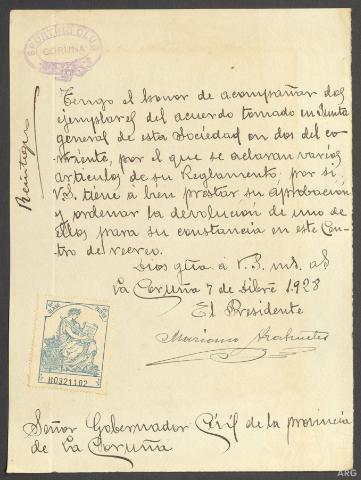 SPORTING CLUB
CORUÑA
Tengo el honor de acompañar dos
ejemplares del acuerdo tomado en Junta
general de esta Sociedad en dos del co-
rriente, por el que se aclaran varios
articulos de su Reglamento, por si
V.S. tiene á bien prestar su aprobación
y ordenar la devolución de uno de
ellos para su constancia en este Cen-
tro de recreo.
Dios gûe á V.S. ms. as
La Coruña 7 de Dibre 1928
El Presidente
Mariano
N0321102
Señor Gobernador Civil de la provincia
de La Coruña
ARG